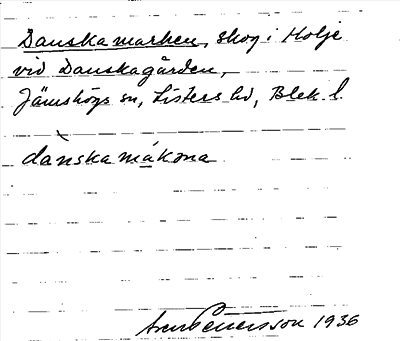 Danskamarken, skog i Holje
vid Danskagården,
Jämshögs sn, Listers hd, Blek. l.
dànskamákona
Pettersson 1936